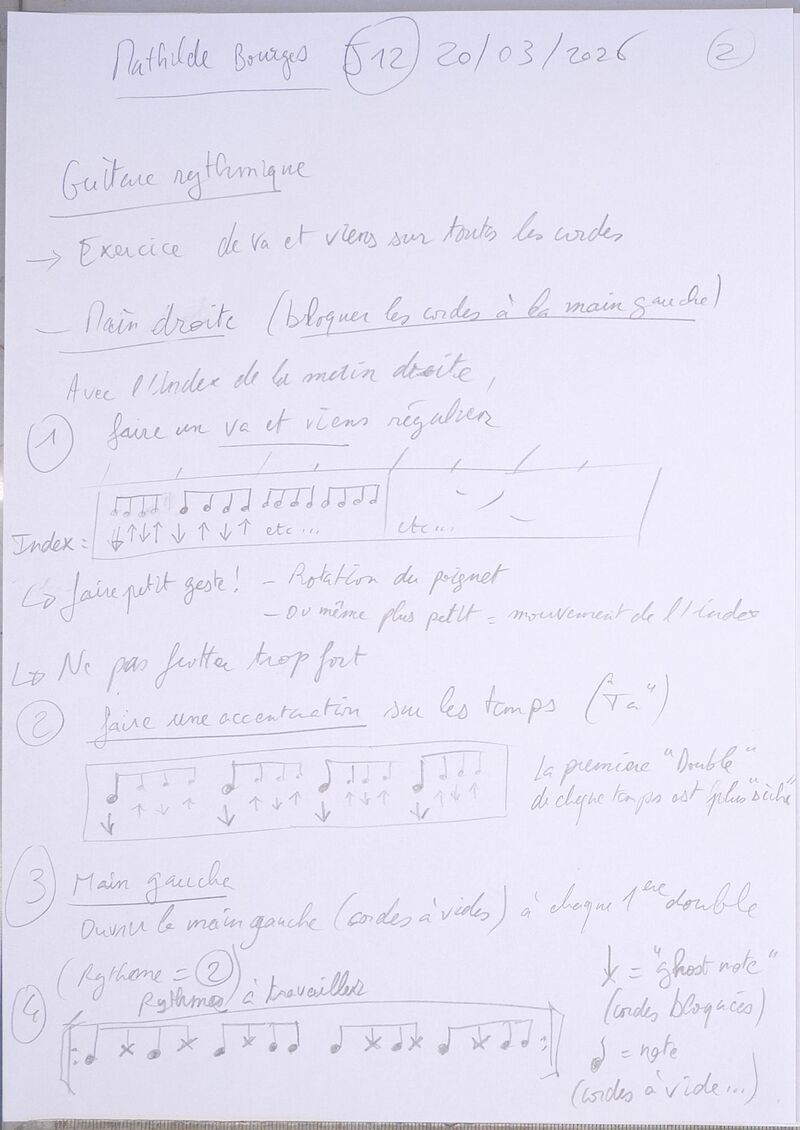 Mathilde Bourges J12 20/03/2026 2
Guitare rythmique
→ Exercice de va et viens sur toutes les cordes
— Main droite (bloquer les cordes à la main gauche)
Avec l'index de la main droite,
1 faire un va et viens régulier
Index = ↓↑↓↑ ↓ ↑ ↓ ↑ etc... etc...
↳ faire petit geste ! – Rotation du poignet
– Ou même plus petit = mouvement de l'index
↳ Ne pas frotter trop fort
2 faire une accentuation sur les temps ("Ta")
La première "Double"
de chaque temps est plus "sèche"
↓ ↑ ↓ ↑ ↓ ↑ ↓ ↑ ↓ ↑ ↓ ↑ ↓ ↑ ↓ ↑
3 Main gauche
Ouvrir la main gauche (cordes à vides) à chaque 1ere double
(Rythme = 2)
4 Rythmes à travailler
x = "ghost note"
(cordes bloquées)
♩ = note
(cordes à vide...)